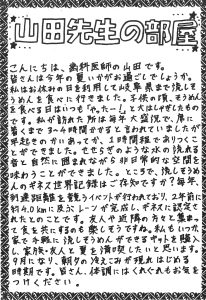 山田先生の部屋
こんにちは、歯科医師の山田です。
皆さんは今年の夏いかがお過ごしでしょうか。
私はお休みの日を利用して岐阜県まで流しそ
うめんを食べに行きました。子供の頃、そうめん
を食べる日はいつも「やったー!」と大はしゃぎしたもの
です。私が訪れた所は毎年大盛況で、席に
着くまで3〜4時間かすると言われていましたが
早起きのかいあってか、1時間程でありつく
ことができました。せせらぎのような水の流れる
音と自然に囲まれながら非日常的な空間を
味わうことができました。ところで、流しそうめん
のギネス世界記録はご存知ですか?毎年、
到達距離を競うイベントが行われており、2年前に
約4.0kmに及ぶレーンが完成し、ギネスに認定さ
れたとのことです。友人や近隣の方々と集まっ
て食を共にするのも楽しそうですね。私もいつか
家で手軽に流しそうめんができるキットを購入
し、家族・友人と夏を満喫したいと思います。
9月になり、朝夕の冷えこみが現れはじめる
時期です。皆さん、体調にはくれぐれもお気を
つけください。